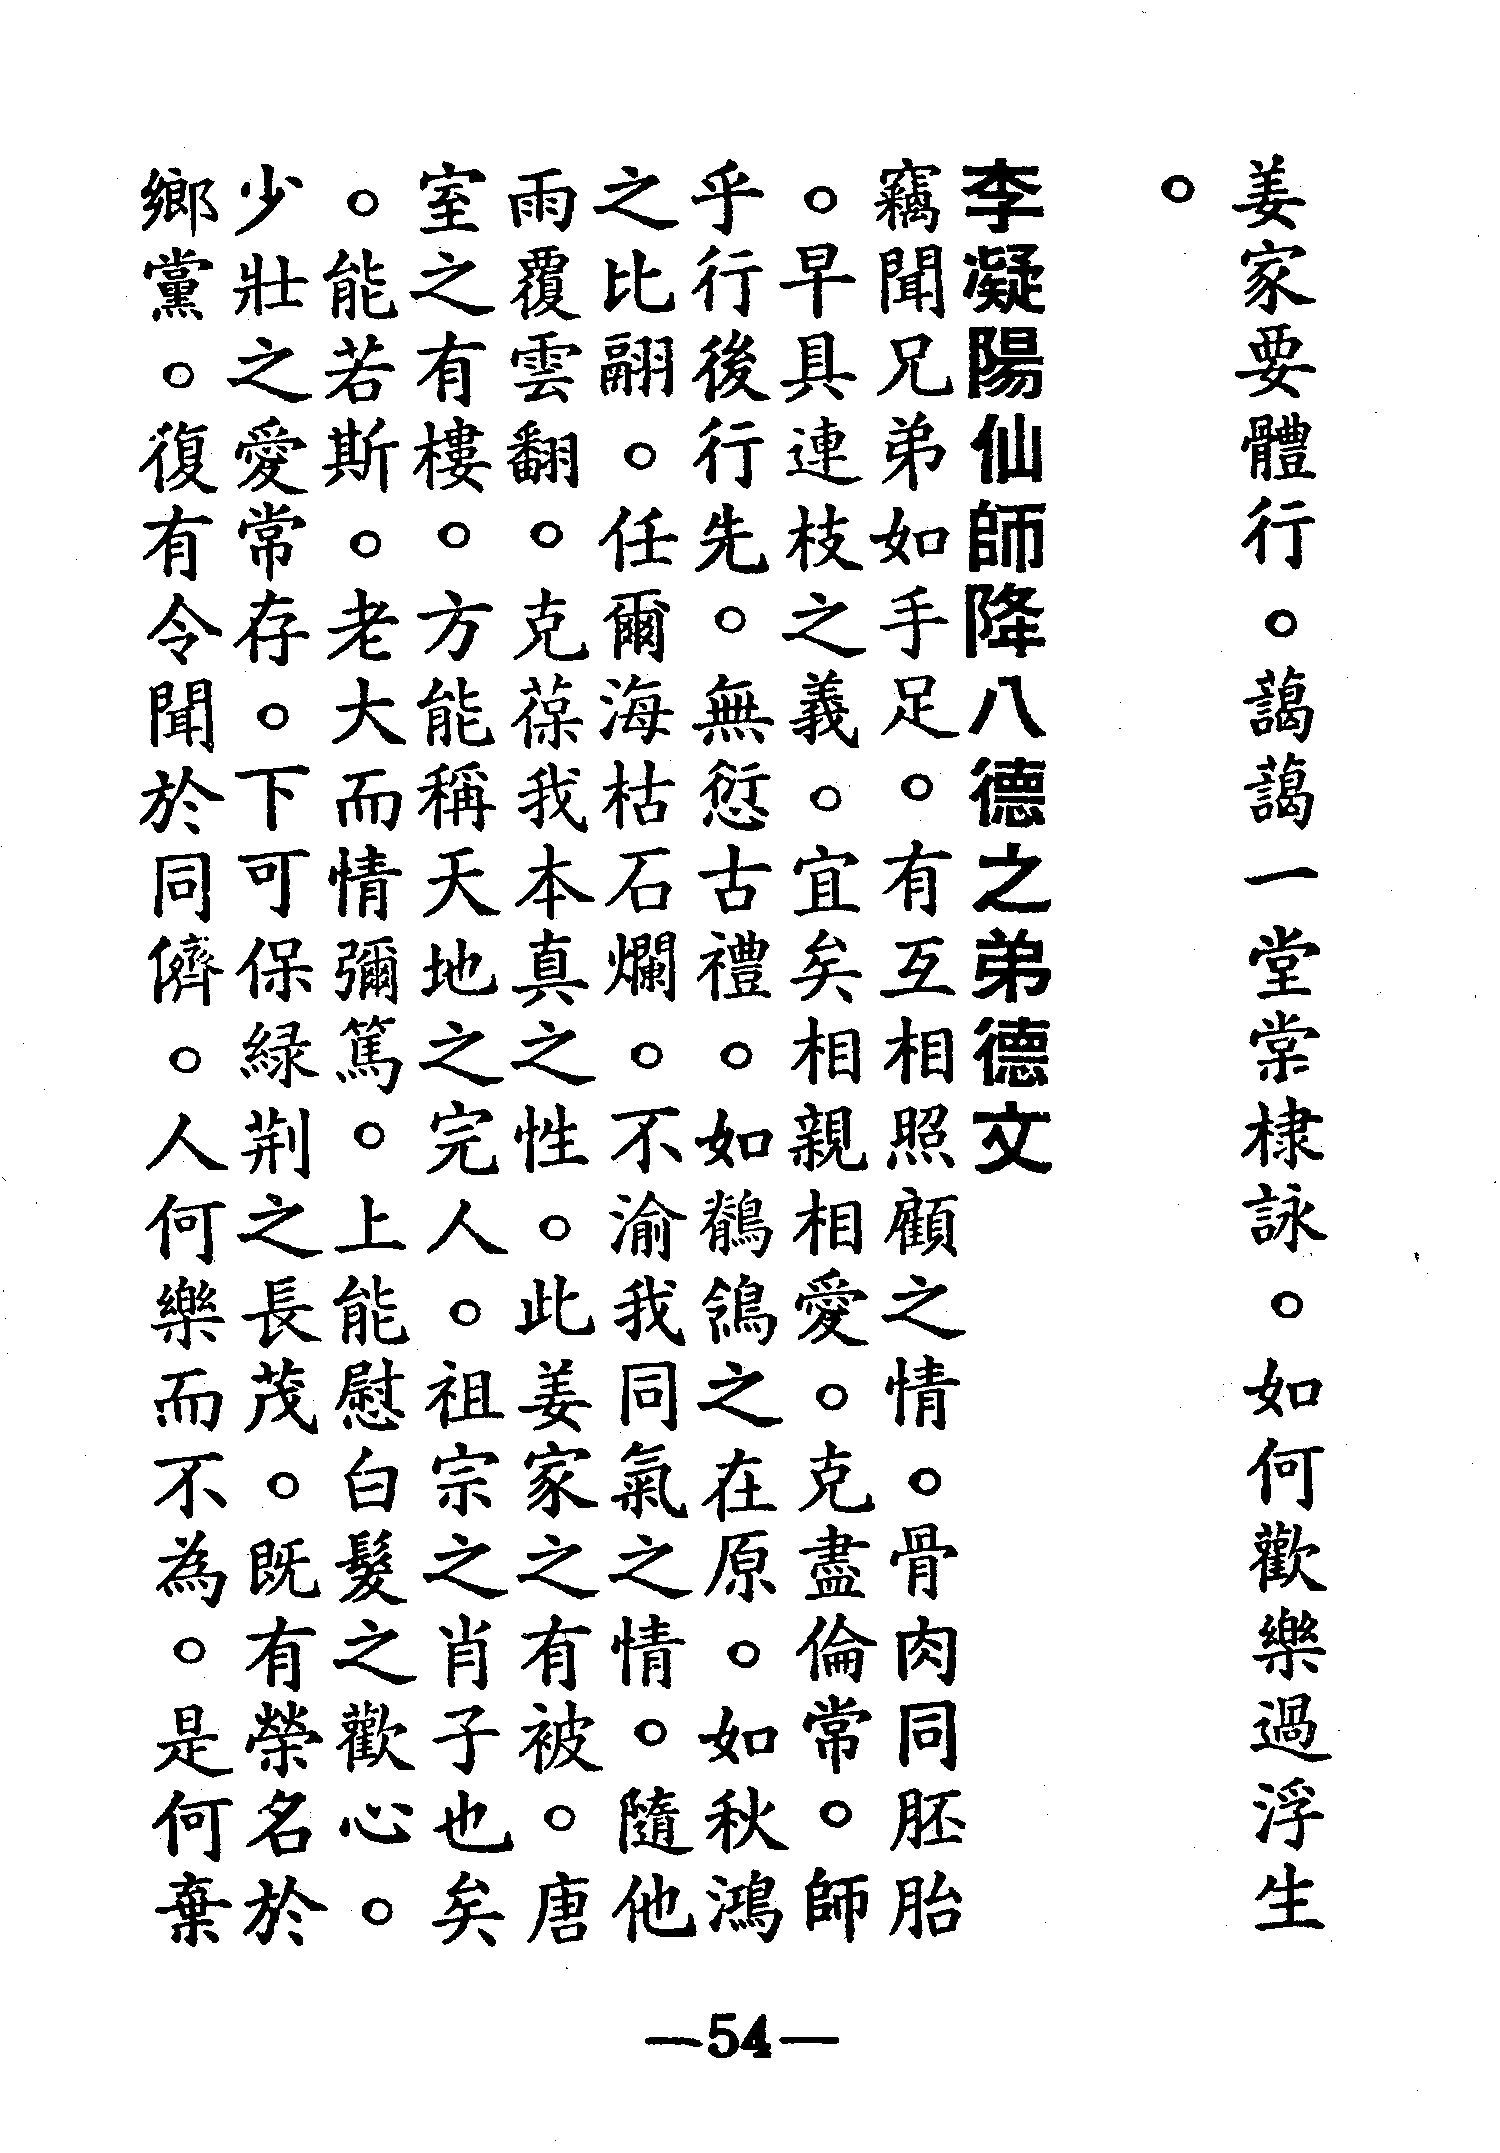 姜家要體行。藹藹一堂棠棣詠。如何歡樂過浮生
。
李凝陽仙師降八德之弟德文
竊聞兄弟如手足。有互相照顧之情。骨肉同胚胎
。早具連枝之義。宜矣相親相愛。克盡倫常。師
乎行後行先。無愆古禮。如鶺鴒之在原。如秋鴻
之比翮。任爾海枯石爛。不渝我同氣之情。隨他
雨覆雲翻。克葆我本真之性。此姜家之有被。唐
室之有樓。方能稱天地之完人。祖宗之肖子也矣
。能若斯。老大而情彌篤。上能慰白髮之歡心。
少壯之愛常存。下可保綠荆之長茂。既有榮名於
鄉黨。復有令聞於同儕。人何樂而不為。是何棄
—54—